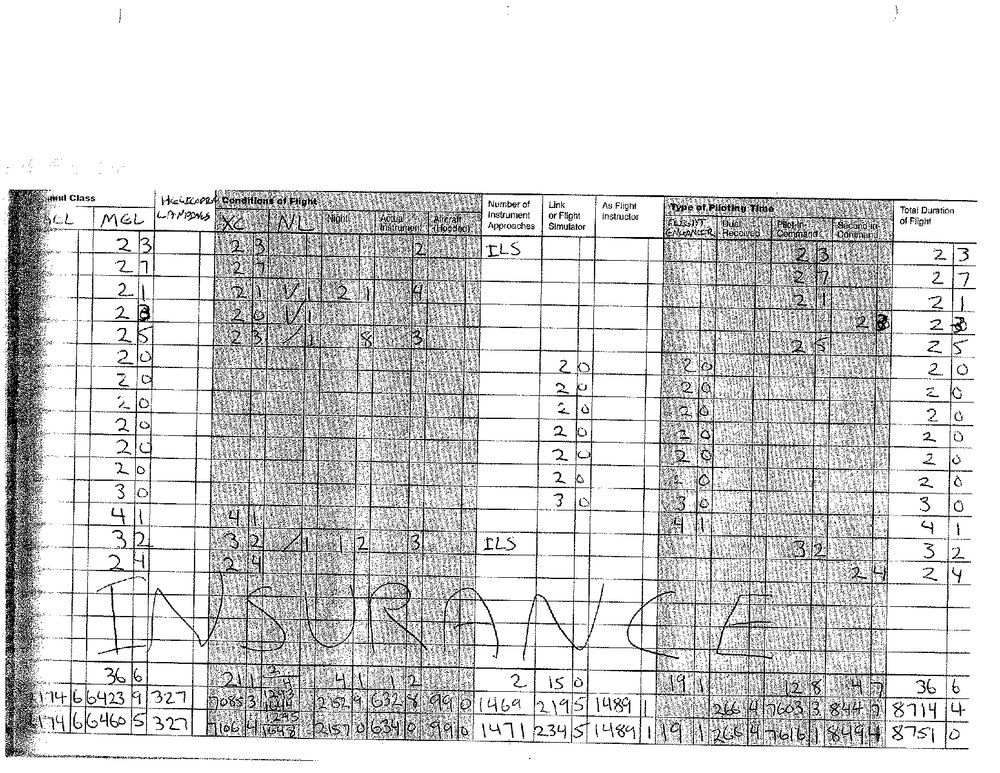 and Class HELICOPTER Conditions of Flight Number of Instrument Approaches Link or Flight Simulator As Flight Instructor Type of Piloting Time Total Duration of Flight
MGL LANDINGS XC NL Night Actual Instrument Aircraft (Hooded) FLIGHT ENGINEER Dual Received Pilot-in-Command Second-in-Command
2 3 2 3 2 ILS 2 3 2 3
2 7 2 7 2 7 2 7
2 1 2 1 1/1 2 1 4 2 1 2 1
2 0 1/1
2 5 2 3 /1 8 3 2 5 2 5
2 0 2 0 2 0 2 0
2 0 2 0 2 0 2 0
2 0 2 0 2 0 2 0
2 0 2 0 2 0 2 0
2 0 2 0 2 0 2 0
2 0 2 0 2 0 2 0
3 0 3 0 3 0 3 0
4 1 4 1 4 1 4 1
3 2 3 2 /1 1 2 3 ILS 3 2 3 2
2 4 2 4 2 4 2 4
INSURANCE
36 6 21 1 4 1 1 2 2 15 0 19 1 12 8 4 7 36 6
174 6 6423 9 327 7085 3 2152 9 632 8 99 0 1469 219 5 1489 1 266 4 7603 3 844 7 8714 4
174 6 6460 5 327 7106 4 2157 0 634 0 99 0 1471 234 5 1489 1 19 1 266 4 7616 1 849 4 8751 0